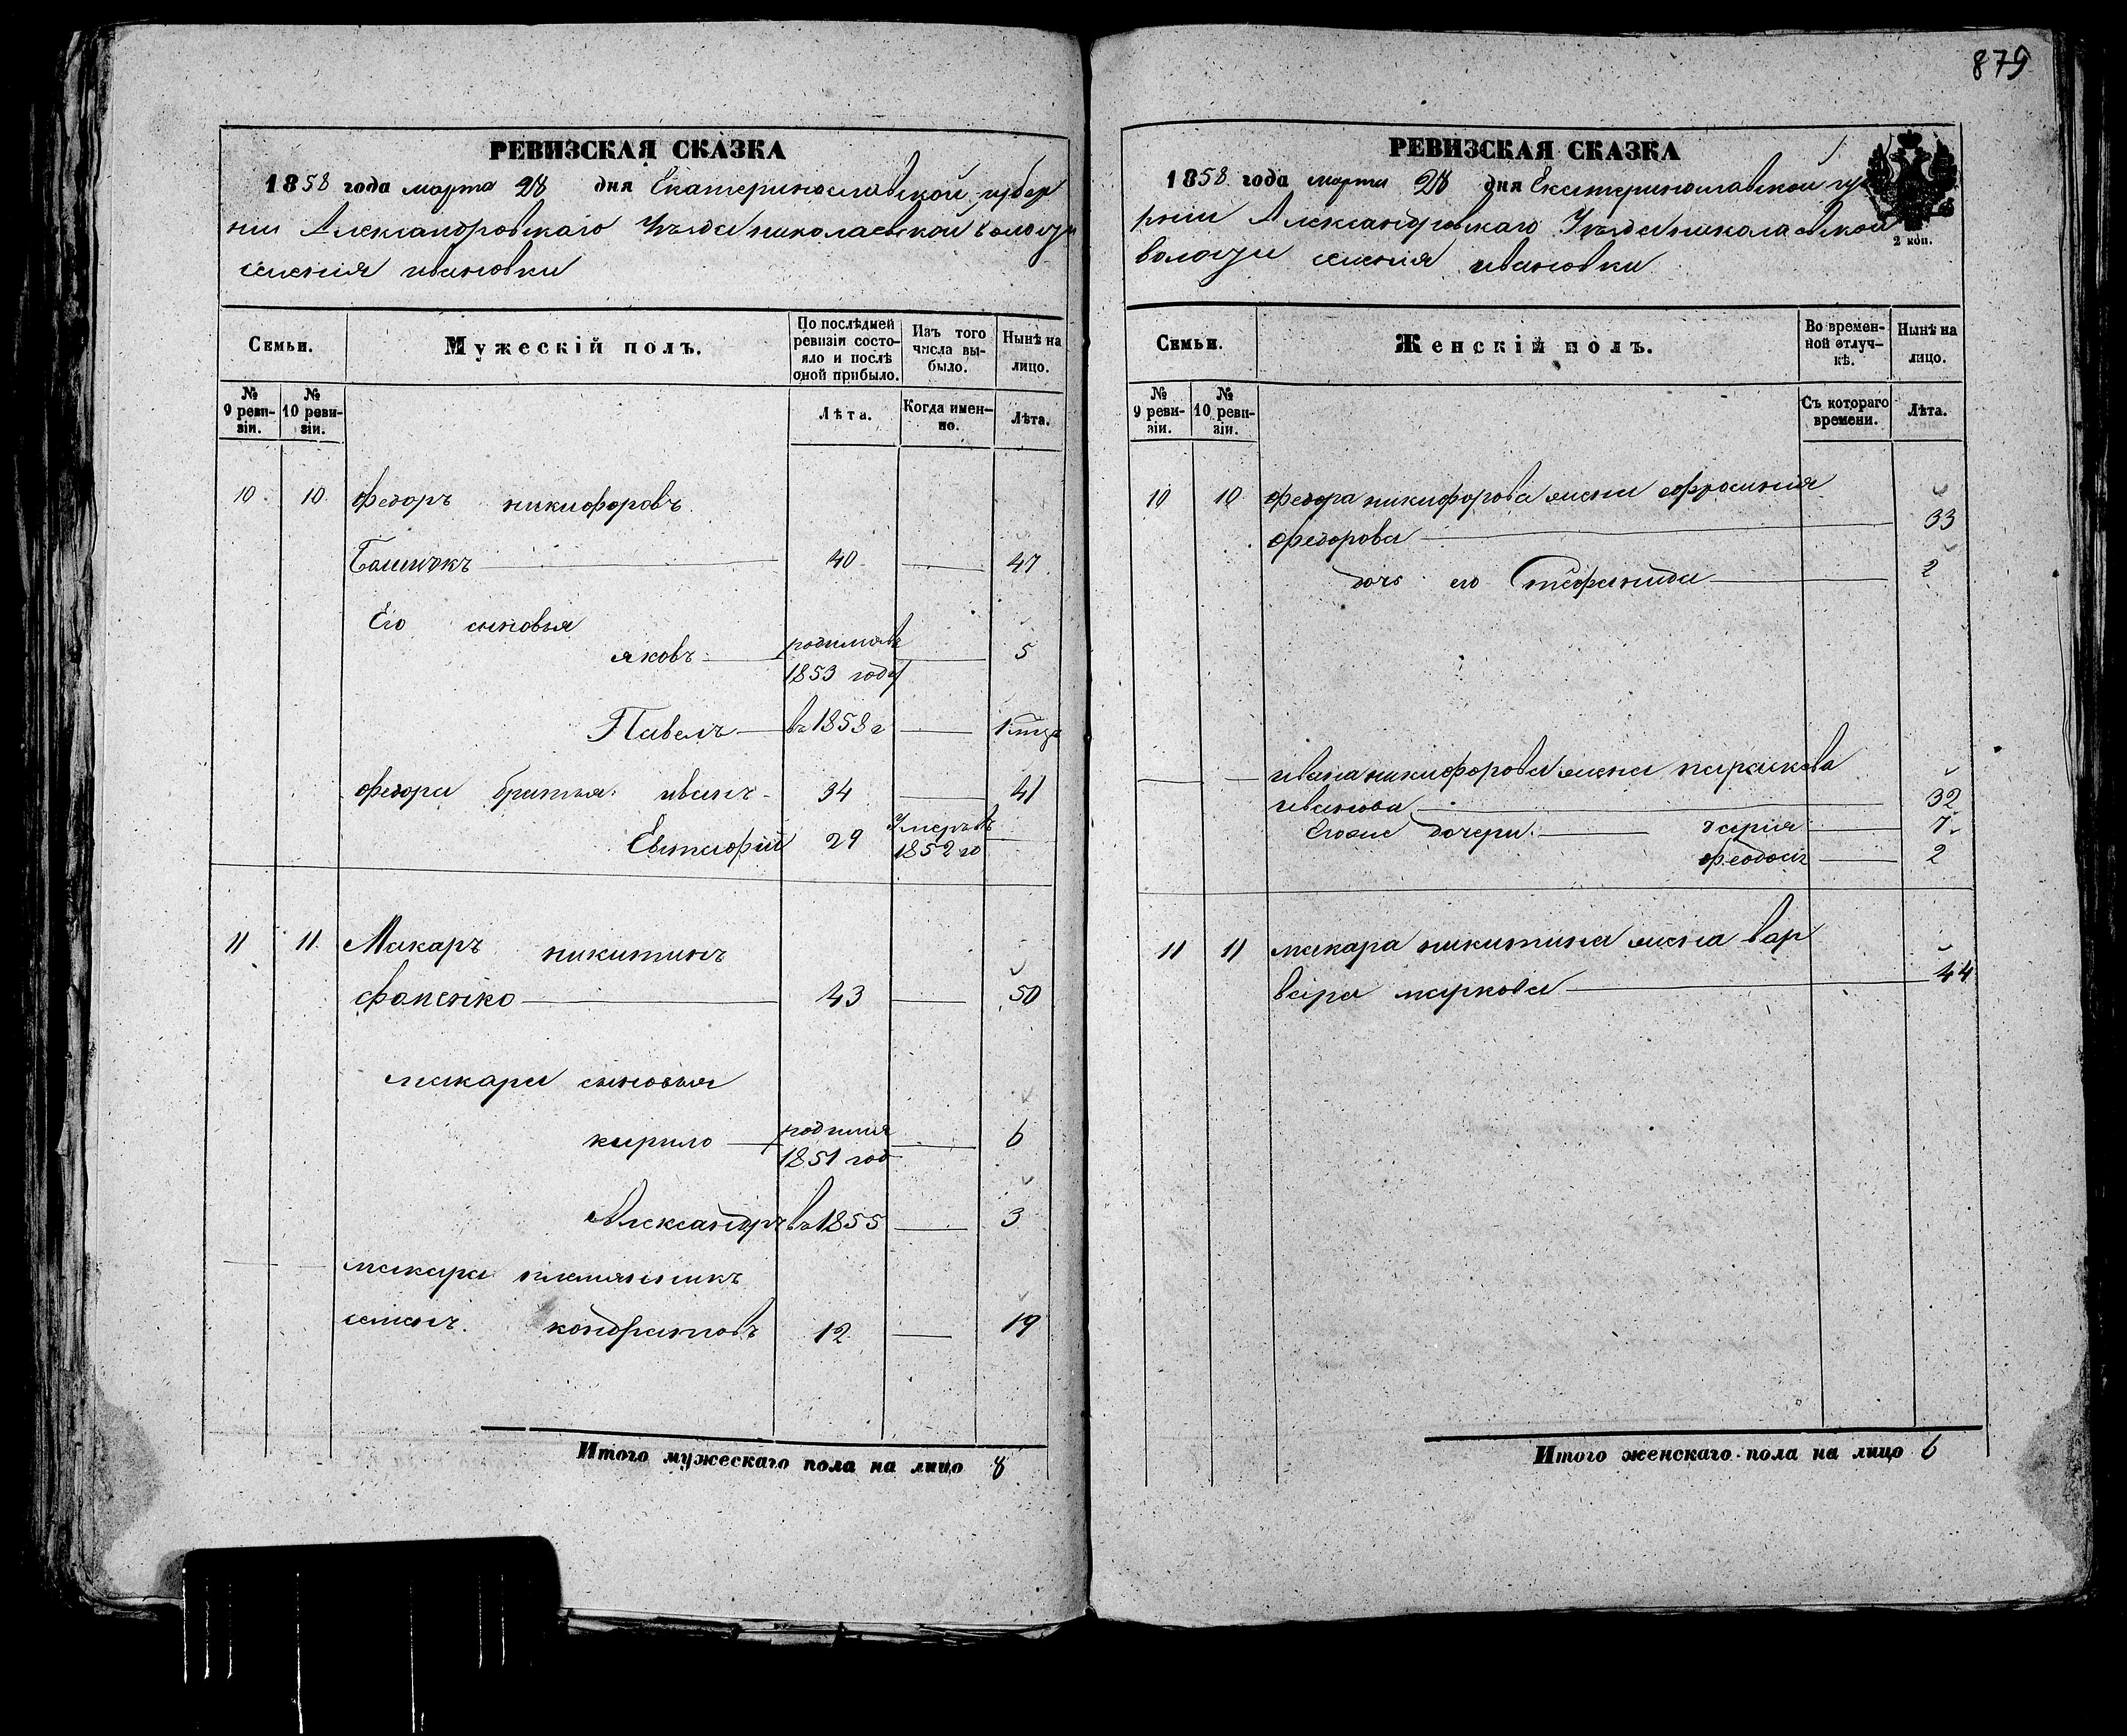 879
РЕВИЗСКАЯ СКАЗКА
1858 года марта 28 дня Екатеринославской губер
нии Александровскаго Уѣзда николаевской волости
селения ивановки
Семьи.
Мужескій полъ.
По послѣдней ревизіи состояло и послѣ оной прибыло.
Изъ того числа выбыло.
Нынѣ на лицо.
№ 9 ревизіи.
№ 10 ревизіи.
Лѣта.
Когда именно.
Лѣта.
10 10 федоръ никифоровъ
40 47
Его сыновья
яковъ родился въ 1853 году 5
Павелъ въ 1858 г
федора братья иванъ 34 41
29 Умеръ въ 1852 го
11 11 Макаръ никитинъ
43 50
макара сыновья
кирило родился 1851 год 6
Александръ въ 1855 3
макара племянникъ
семенъ кондратовъ 12 19
Итого мужескаго пола на лицо 8
РЕВИЗСКАЯ СКАЗКА
2 коп.
1858 года марта 28 дня Екатеринославской гу
рнии Александровскаго Уѣзда николаевской
волости селения ивановки
Семьи.
Женскій полъ.
Во временной отлучкѣ.
Нынѣ на лицо.
№ 9 ревизіи.
№ 10 ревизіи.
Съ котораго времени.
Лѣта.
10 10 федора никифорова жена ефросиния
федорова 33
дочь его 2
ивана никифорова жена параскева
иванова 32
Егоже дочери дария 7
феодося 2
11 11 макара никитина жена вар
вара маркова 44
Итого женскаго пола на лицо 6